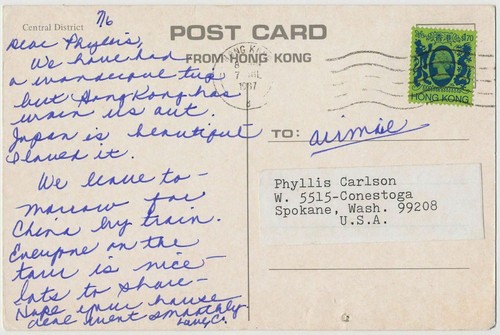 7/6
Central District
POST CARD
FROM HONG KONG
Dear Phyllis,
We have had
a wonderous trip
but Hong Kong has
worn us out.
Japan is beautiful
I loved it.
We leave to-
morrow for
China by train.
Everyone on the
tour is nice -
lots to share -
Hope your house
deal went smoothly
Love,
HONG KONG
7
1987
$1.70
HONG KONG
TO:
airmail
Phyllis Carlson
W. 5515-Conestoga
Spokane, Wash. 99208
U.S.A.